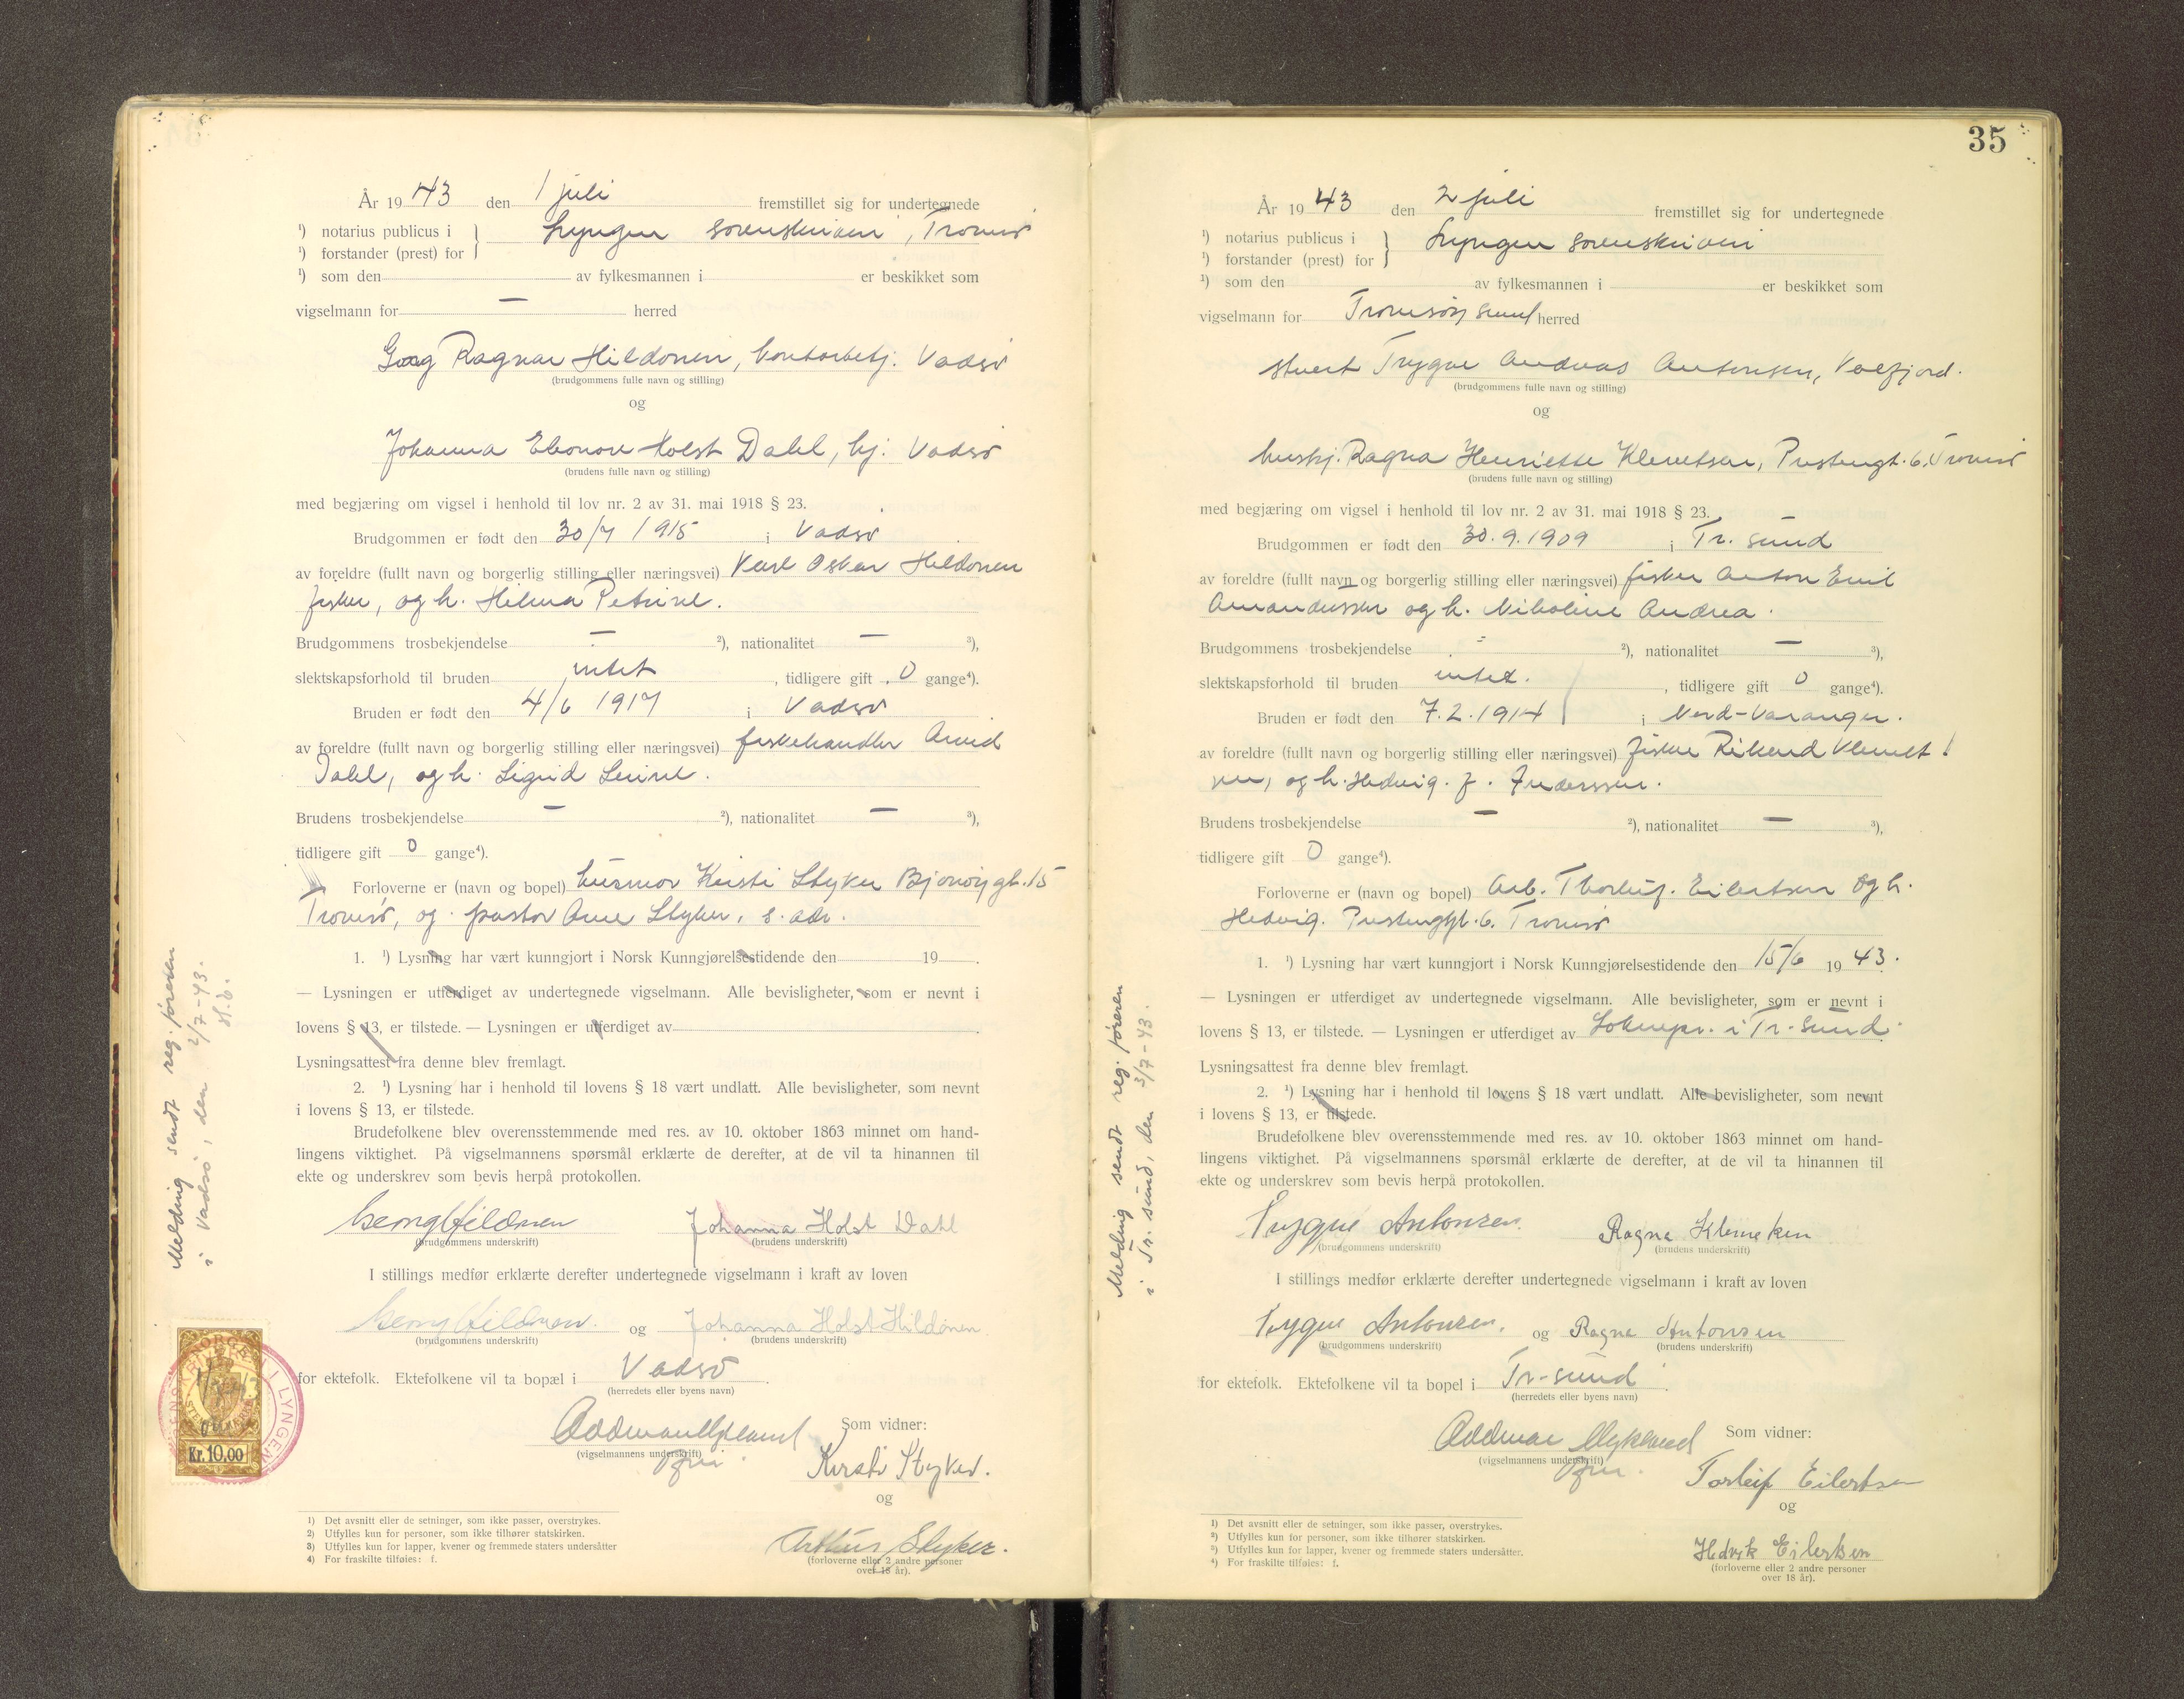 År 1943 den 1 juli fremstillet sig for undertegnede
¹) notarius publicus i } Lyngen sorenskriveri, Tromsø
¹) forstander (prest) for
¹) som den av fylkesmannen i er beskikket som
vigselmann for — herred
Georg Ragnar Hildonen, kontorbetj. Vadsø
(brudgommens fulle navn og stilling)
og
Johanna Elonore Holst Dahl, hj. Vadsø
(brudens fulle navn og stilling)
med begjæring om vigsel i henhold til lov nr. 2 av 31. mai 1918 § 23.
Brudgommen er født den 30/7 1915 i Vadsø
av foreldre (fullt navn og borgerlig stilling eller næringsvei) Karl Oskar Hildonen
fisker, og h. Helma Petrine.
Brudgommens trosbekjendelse — ²), nationalitet — ³),
slektskapsforhold til bruden intet, tidligere gift 0 gange⁴).
Bruden er født den 4/6 1917 i Vadsø
av foreldre (fullt navn og borgerlig stilling eller næringsvei) fiskehandler Arvid
Dahl, og h. Sigrid Lovise.
Brudens trosbekjendelse — ²), nationalitet — ³),
tidligere gift 0 gange⁴).
Forloverne er (navn og bopel) husmor Kirsti Styker Bjørnøygt. 15
Tromsø, og pastor Arne Styker, s. adr.
1. ¹) Lysning har vært kunngjort i Norsk Kunngjørelsestidende den 19 .
— Lysningen er utferdiget av undertegnede vigselmann. Alle bevisligheter, som er nevnt i
lovens § 13, er tilstede. — Lysningen er utferdiget av
Lysningsattest fra denne blev fremlagt.
2. ¹) Lysning har i henhold til lovens § 18 vært undlatt. Alle bevisligheter, som nevnt
i lovens § 13, er tilstede.
Brudefolkene blev overensstemmende med res. av 10. oktober 1863 minnet om hand-
lingens viktighet. På vigselmannens spørsmål erklærte de derefter, at de vil ta hinannen til
ekte og underskrev som bevis herpå protokollen.
Georg Hildonen Johanna Holst Dahl
(brudgommens underskrift) (brudens underskrift)
I stillings medfør erklærte derefter undertegnede vigselmann i kraft av loven
Georg Hildonen og Johanna Holst Hildonen
(brudgommens underskrift) (brudens underskrift)
for ektefolk. Ektefolkene vil ta bopæl i Vadsø
(herredets eller byens navn)
Oddmar Mykland Som vidner:
(vigselmannens underskrift)
Kirsti Styker.
og
Arthur Styker.
(forloverne eller 2 andre personer
over 18 år).
1) Det avsnitt eller de setninger, som ikke passer, overstrykes.
2) Utfylles kun for personer, som ikke tilhører statskirken.
3) Utfylles kun for lapper, kvener og fremmede staters undersåtter
4) For fraskilte tilføies: f.
Melding sendt reg. føreren
i Vadsø, den 2/7-43.
Kr. 10.00
35
År 1943 den 2 juli fremstillet sig for undertegnede
¹) notarius publicus i } Lyngen sorenskriveri
¹) forstander (prest) for
¹) som den av fylkesmannen i er beskikket som
vigselmann for Tromsøysund herred
stuert Trygve Andreas Antonsen, Kvalfjord.
(brudgommens fulle navn og stilling)
og
hushj. Ragna Henriette Klemetsen, Prestengt. 6, Tromsø
(brudens fulle navn og stilling)
med begjæring om vigsel i henhold til lov nr. 2 av 31. mai 1918 § 23.
Brudgommen er født den 30.9.1909 i Tr. sund
av foreldre (fullt navn og borgerlig stilling eller næringsvei) fisker Anton Emil
Amandussen og h. Nikoline Andrea.
Brudgommens trosbekjendelse - ²), nationalitet — ³),
slektskapsforhold til bruden intet., tidligere gift 0 gange⁴).
Bruden er født den 7.2.1914 i Nord-Varanger.
av foreldre (fullt navn og borgerlig stilling eller næringsvei) fisker Rikard Klemet
sen, og h. Hedvig. f. Anderssen.
Brudens trosbekjendelse — ²), nationalitet — ³),
tidligere gift 0 gange⁴).
Forloverne er (navn og bopel) Arb. Thorleif. Eilertsen og h.
Hedvig. Prestenggt. 6. Tromsø
1. ¹) Lysning har vært kunngjort i Norsk Kunngjørelsestidende den 15/6 1943.
— Lysningen er utferdiget av undertegnede vigselmann. Alle bevisligheter, som er nevnt i
lovens § 13, er tilstede. — Lysningen er utferdiget av Soknepr. i Tr. sund.
Lysningsattest fra denne blev fremlagt.
2. ¹) Lysning har i henhold til lovens § 18 vært undlatt. Alle bevisligheter, som nevnt
i lovens § 13, er tilstede.
Brudefolkene blev overensstemmende med res. av 10. oktober 1863 minnet om hand-
lingens viktighet. På vigselmannens spørsmål erklærte de derefter, at de vil ta hinannen til
ekte og underskrev som bevis herpå protokollen.
Trygve Antonsen. Ragna Klemetsen
(brudgommens underskrift) (brudens underskrift)
I stillings medfør erklærte derefter undertegnede vigselmann i kraft av loven
Trygve Antonsen. og Ragna Antonsen
(brudgommens underskrift) (brudens underskrift)
for ektefolk. Ektefolkene vil ta bopel i Tr-sund
(herredets eller byens navn)
Oddmar Mykland Som vidner:
(vigselmannens underskrift)
Torleif Eilertsen
og
Hedvik Eilertsen
(forloverne eller 2 andre personer
over 18 år).
¹) Det avsnitt eller de setninger, som ikke passer, overstrykes.
²) Utfylles kun for personer, som ikke tilhører statskirken.
³) Utfylles kun for lapper, kvener og fremmede staters undersåtter.
⁴) For fraskilte tilføies: f.
Melding sendt reg. føreren
i Tr. sund, den 3/7-43.